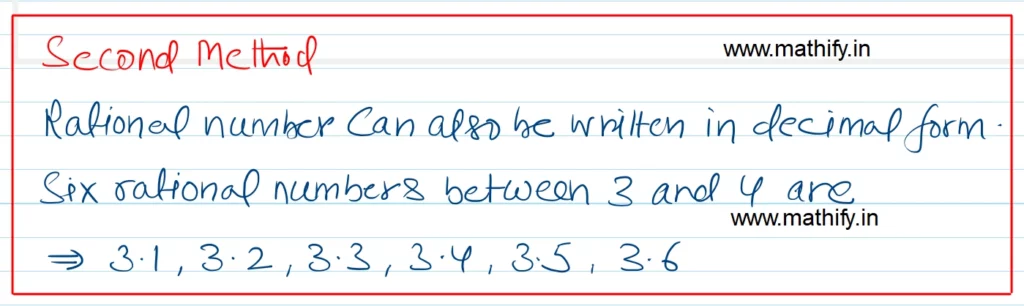 Second Method
www.mathify.in
Rational number Can also be written in decimal form.
Six rational numbers between 3 and 4 are
www.mathify.in
⇒ 3·1, 3·2, 3·3, 3·4, 3·5, 3·6